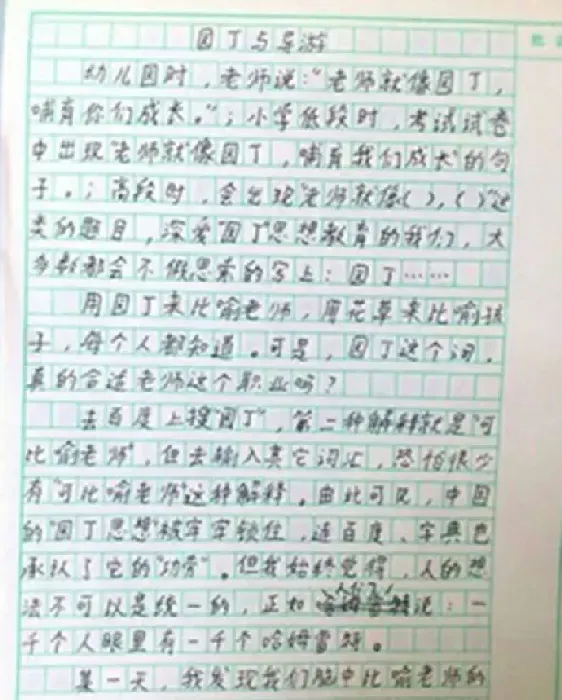 园丁与导游
幼儿园时，老师说：“老师就像园丁，
哺育你们成长。”；小学低段时，考试试卷
中出现“老师就像园丁，哺育我们成长”的句
子。；高段时，会出现“老师就像( )，( )”这
类的题目，深爱“园丁”思想教育的我们，大
多数都会不假思索的写上：园丁……
用园丁来比喻老师，用花草来比喻孩
子，每个人都知道。可是，园丁这个词，
真的合适老师这个职业吗？
去百度上搜“园丁”，第二种解释就是“可
比喻老师”，但去输入其它词汇，恐怕很少
有“可比喻老师”这种解释。由此可见，中国
的“园丁思想”被牢牢锁住，连百度、字典也
承认了它的“功劳”。但我始终觉得，人的想
法不可以是统一的，正如 说：一
千个人眼里有一千个哈姆雷特。
某一天，我发现我们脑中比喻老师的